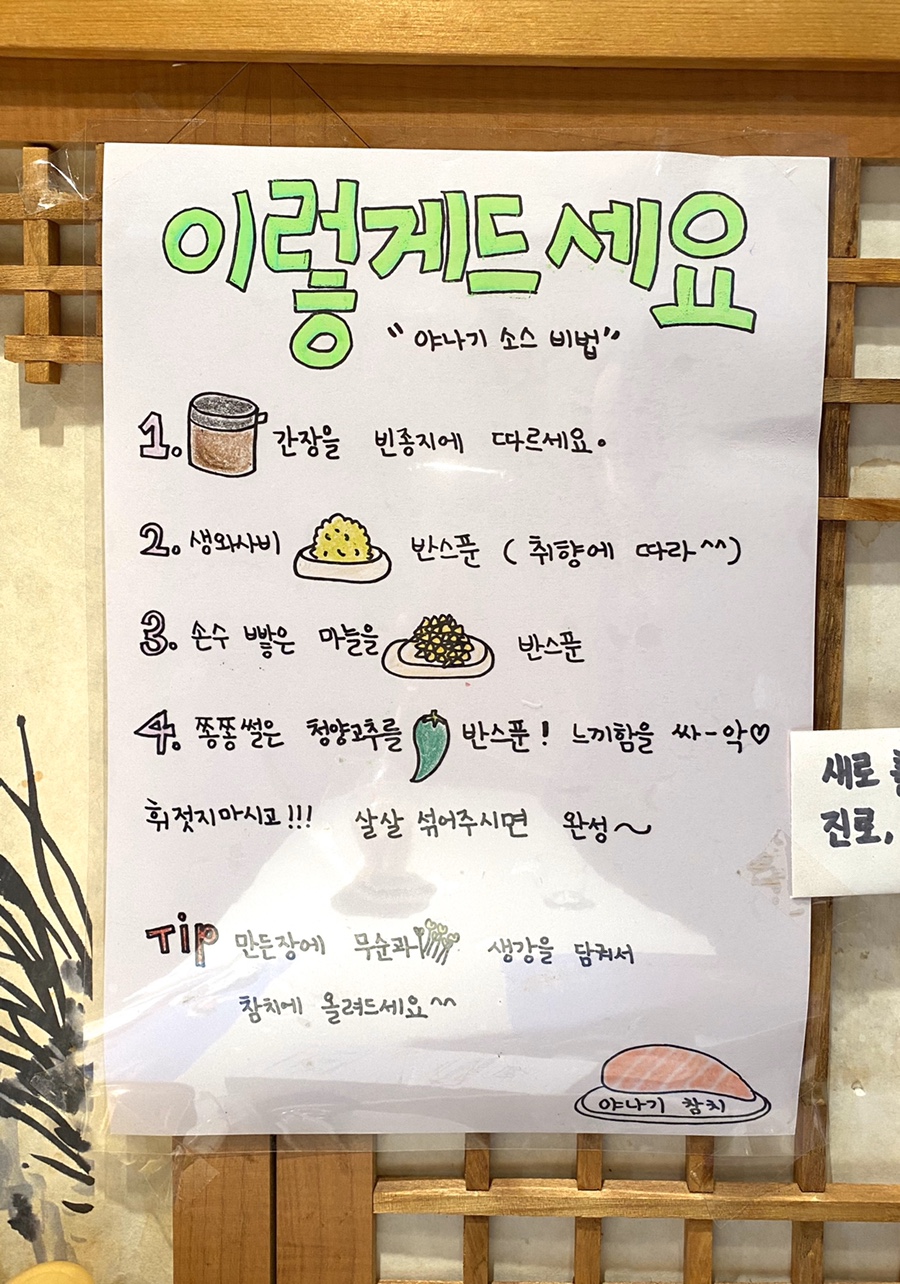 이렇게드세요
"야나기 소스 비법"
1. 간장을 빈종지에 따르세요.
2. 생와사비 반스푼 ( 취향에 따라^^)
3. 손수 빻은 마늘을 반스푼
4. 쫑쫑썰은 청양고추를 반스푼! 느끼함을 싸-악♡
휘젓지마시고!!! 살살 섞어주시면 완성~
Tip 만든장에 무순과 생강을 담궈서
참치에 올려드세요^^
야나기 참치
새로
진로,